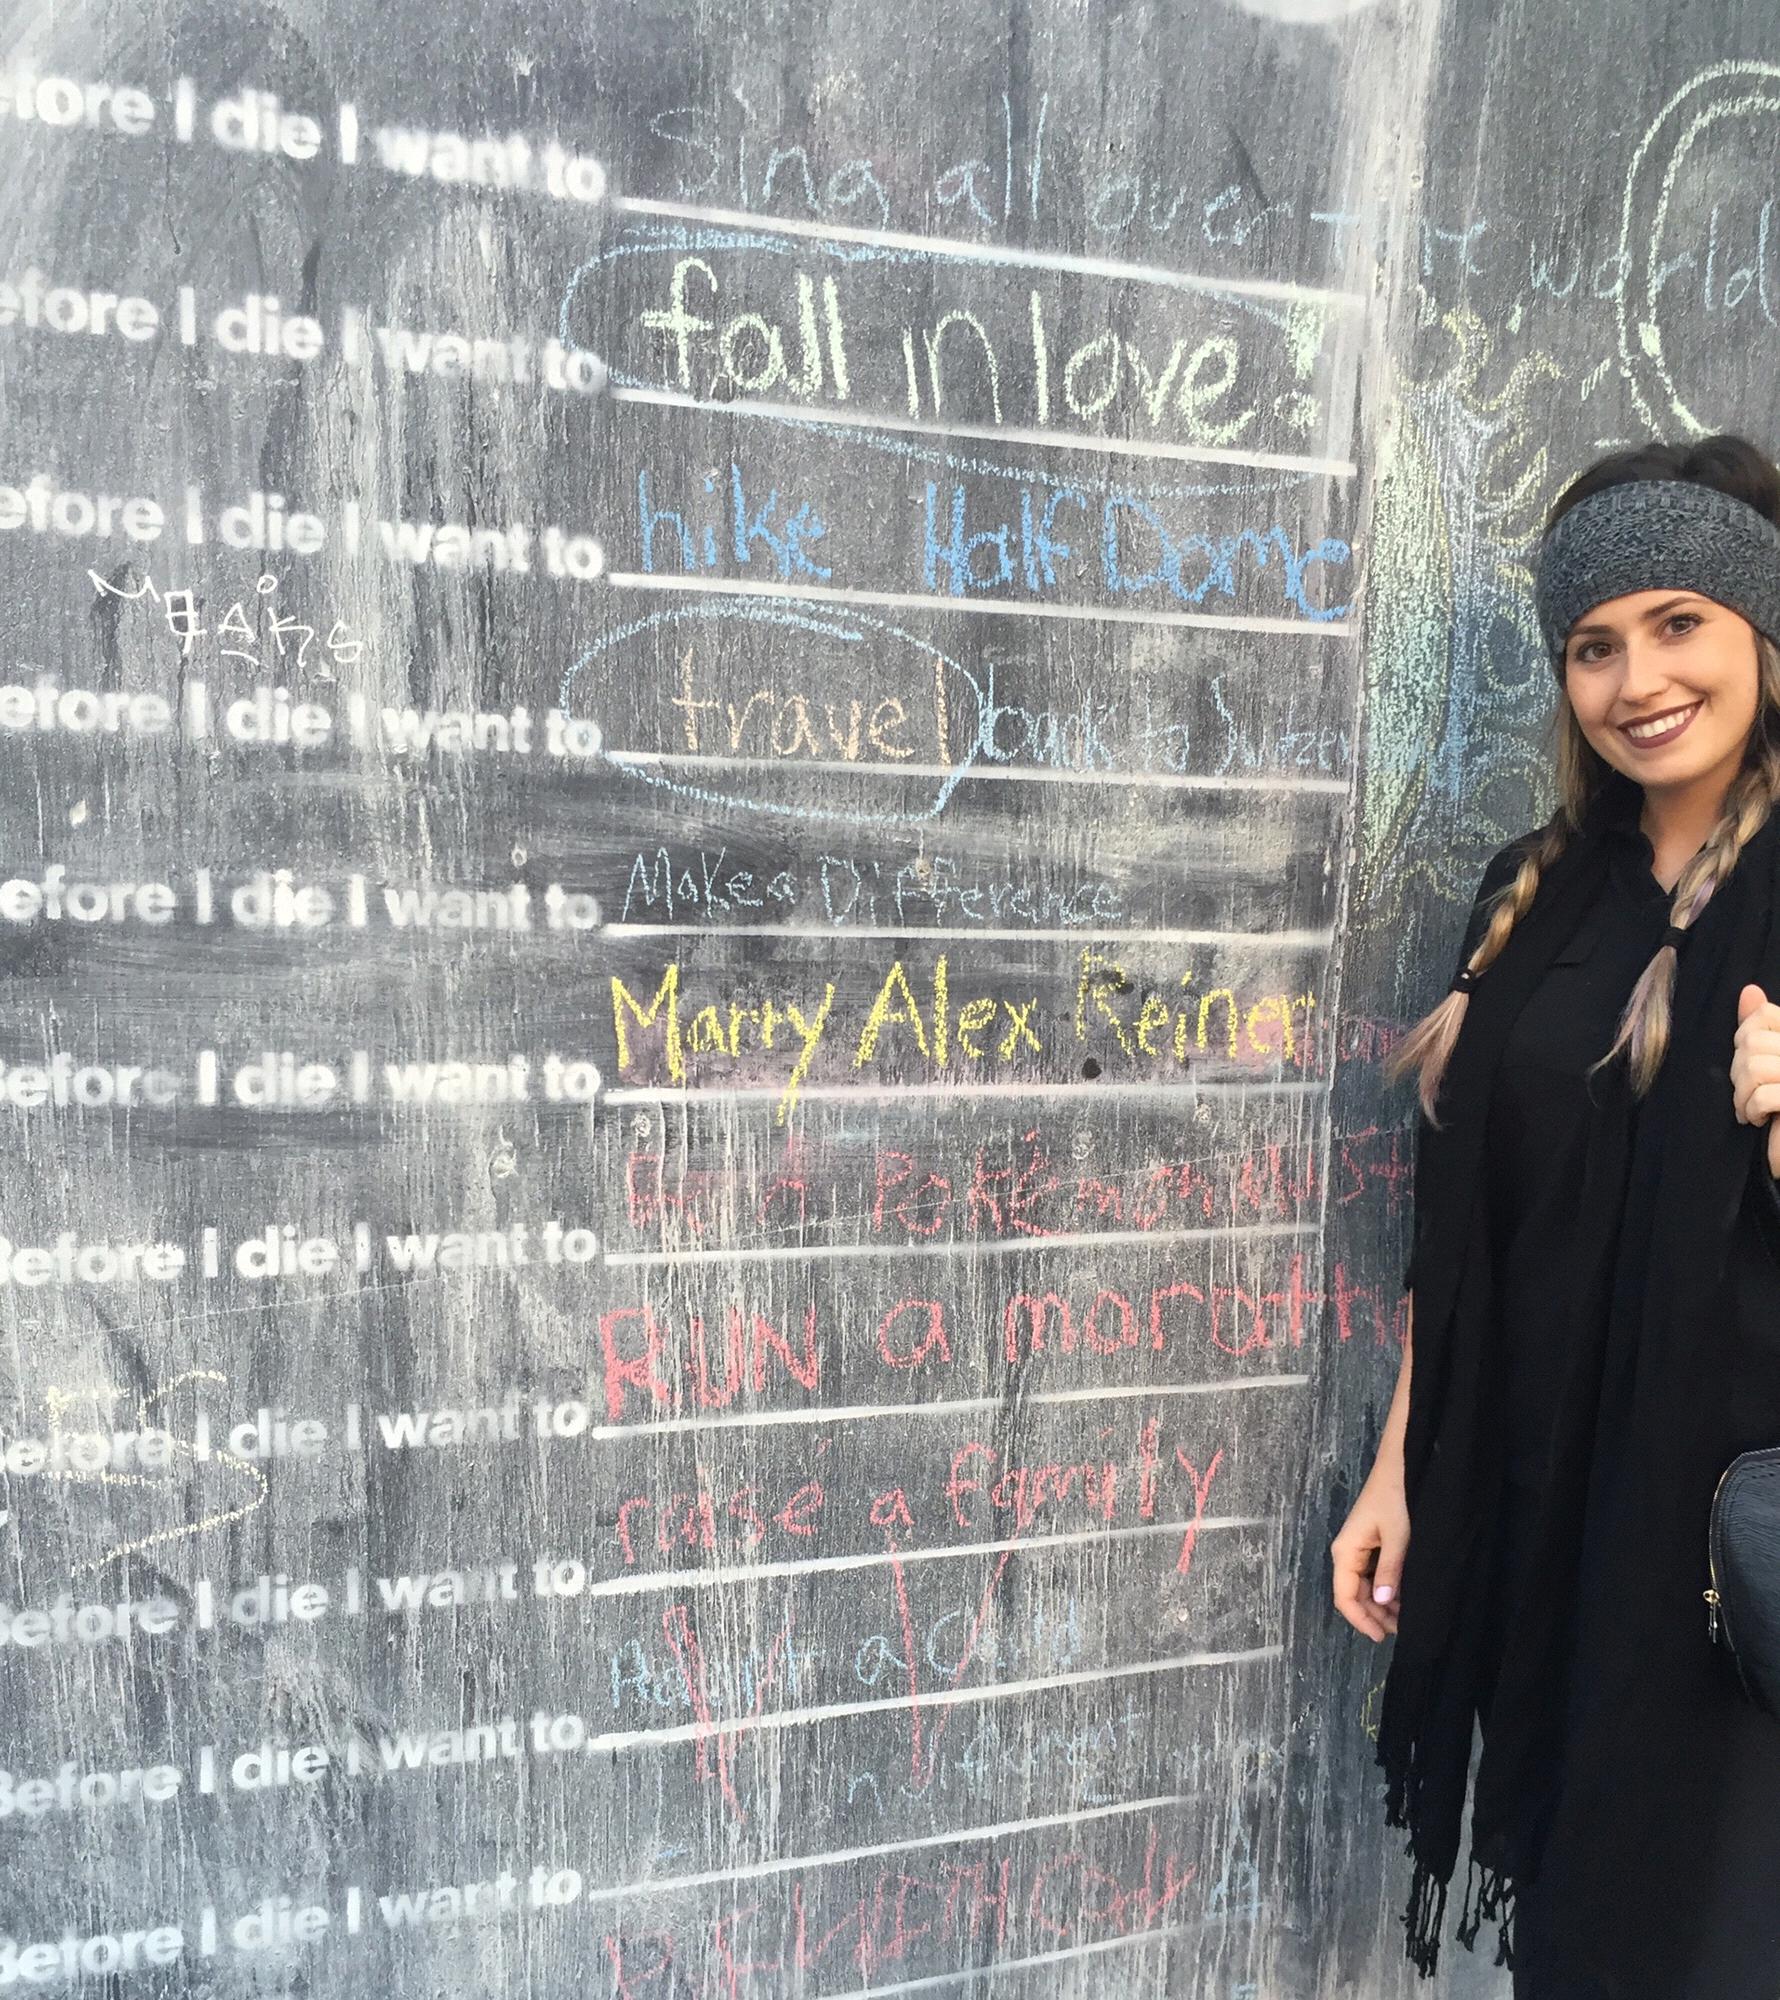 efore I die I want to Sing all over the world
efore I die I want to fall in love!
efore I die I want to hike Half Dome
efore I die I want to travel back to
efore I die I want to Make a Difference
Before I die I want to Marry Alex Reiner
Before I die I want to a Pokémon
Before I die I want to RUN a marath
Before I die I want to raise a family
Before I die I want to Adopt a Child
Before I die I want to